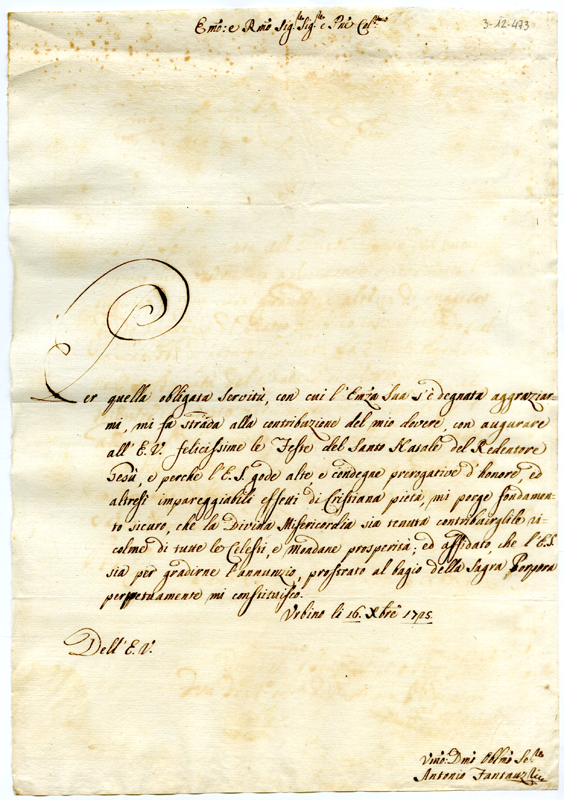 Emo: e Rmo Sig.re Sig.re e Pne Col.mo
3-12-473
Per quella obligata servitù, con cui l'Emza Sua s'è degnata aggraziar-
mi, mi fa strada alla contribuzione del mio dovere, con augurare
all'E.V. felicissime le Feste del Santo Natale del Redentore
Gesù, e perche l'E.S. gode alte, e condegne prerogative d'honore, ed
altresi impareggiabili effetti di Cristiana pietà, mi porge fondamen-
to sicuro, che la Divina Misericordia sia tenuta contribuirglile ri-
colme di tutte le Celesti, e Mondane prosperità; ed affidato, che l'E.S.
sia per gradirne l'annunzio, prostrato al bagio della Sagra Porpora
perpetuamente mi constituisco.
Urbino li 16. Xbre 1725.
Dell'E.V.
Vmo: Dmo Oblmo Se.re
Antonio